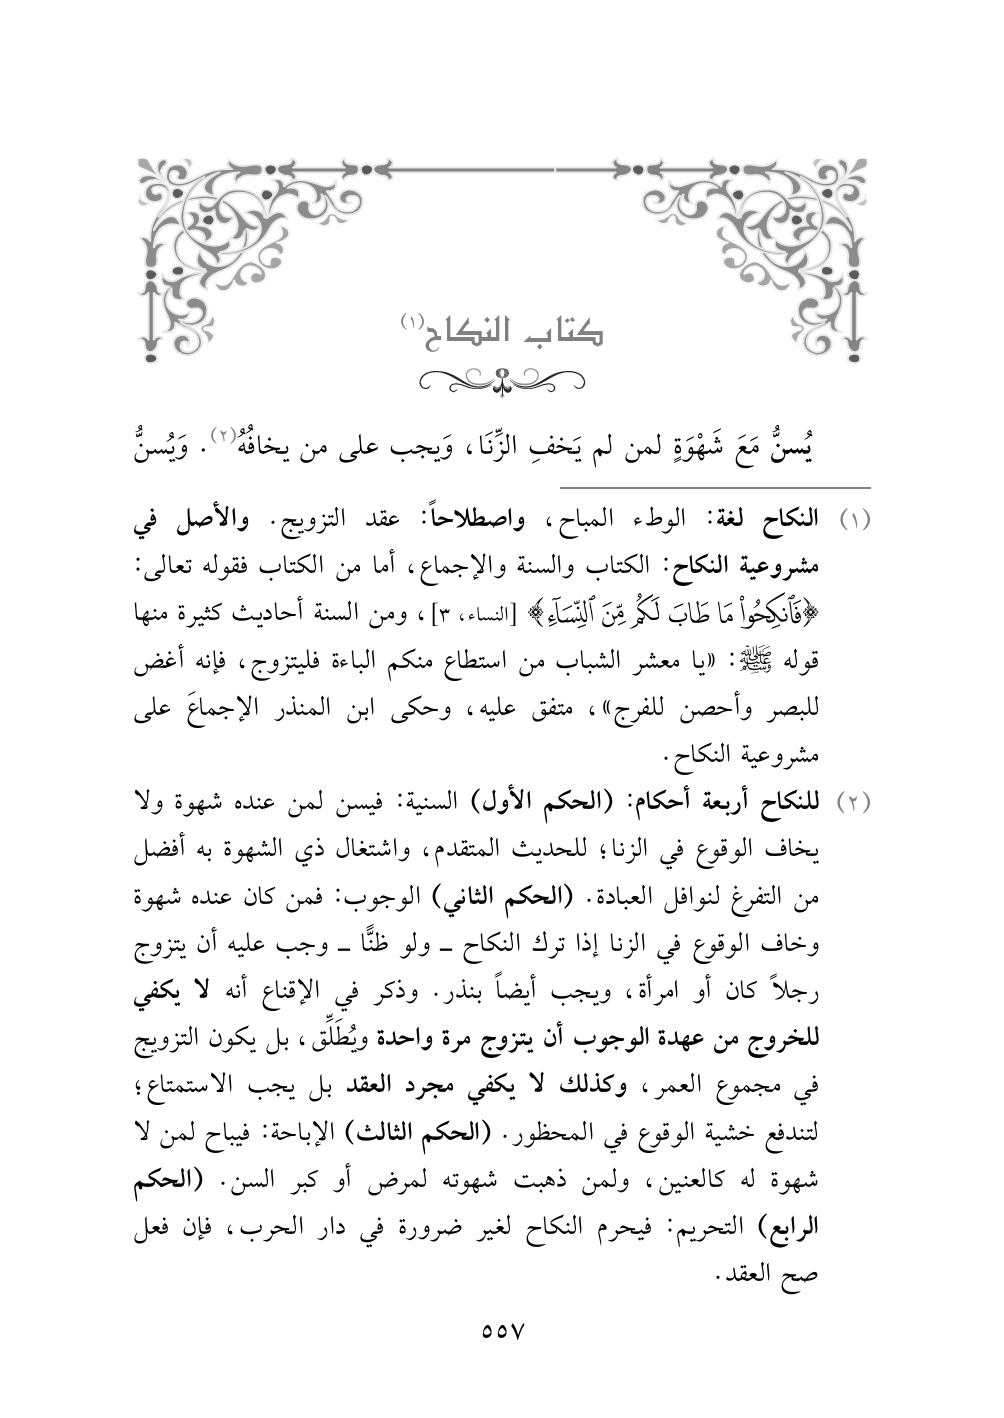 كتاب النكاح(١)
يُسنُّ مَعَ شَهْوَةٍ لمن لم يَخفِ الزِّنَا، وَيجب على من يخافُهُ(٢). وَيُسنُّ
(١) النكاح لغة: الوطء المباح، واصطلاحاً: عقد التزويج. والأصل في
مشروعية النكاح: الكتاب والسنة والإجماع، أما من الكتاب فقوله تعالى:
﴿فَٱنكِحُوا۟ مَا طَابَ لَكُم مِّنَ ٱلنِّسَآءِ﴾ [النساء، ٣]، ومن السنة أحاديث كثيرة منها
قوله ﷺ: «يا معشر الشباب من استطاع منكم الباءة فليتزوج، فإنه أغض
للبصر وأحصن للفرج»، متفق عليه، وحكى ابن المنذر الإجماعَ على
مشروعية النكاح.
(٢) للنكاح أربعة أحكام: (الحكم الأول) السنية: فيسن لمن عنده شهوة ولا
يخاف الوقوع في الزنا؛ للحديث المتقدم، واشتغال ذي الشهوة به أفضل
من التفرغ لنوافل العبادة. (الحكم الثاني) الوجوب: فمن كان عنده شهوة
وخاف الوقوع في الزنا إذا ترك النكاح ــ ولو ظنًّا ــ وجب عليه أن يتزوج
رجلاً كان أو امرأة، ويجب أيضاً بنذر. وذكر في الإقناع أنه لا يكفي
للخروج من عهدة الوجوب أن يتزوج مرة واحدة ويُطَلِّق، بل يكون التزويج
في مجموع العمر، وكذلك لا يكفي مجرد العقد بل يجب الاستمتاع؛
لتندفع خشية الوقوع في المحظور. (الحكم الثالث) الإباحة: فيباح لمن لا
شهوة له كالعنين، ولمن ذهبت شهوته لمرض أو كبر السن. (الحكم
الرابع) التحريم: فيحرم النكاح لغير ضرورة في دار الحرب، فإن فعل
صح العقد.
٥٥٧